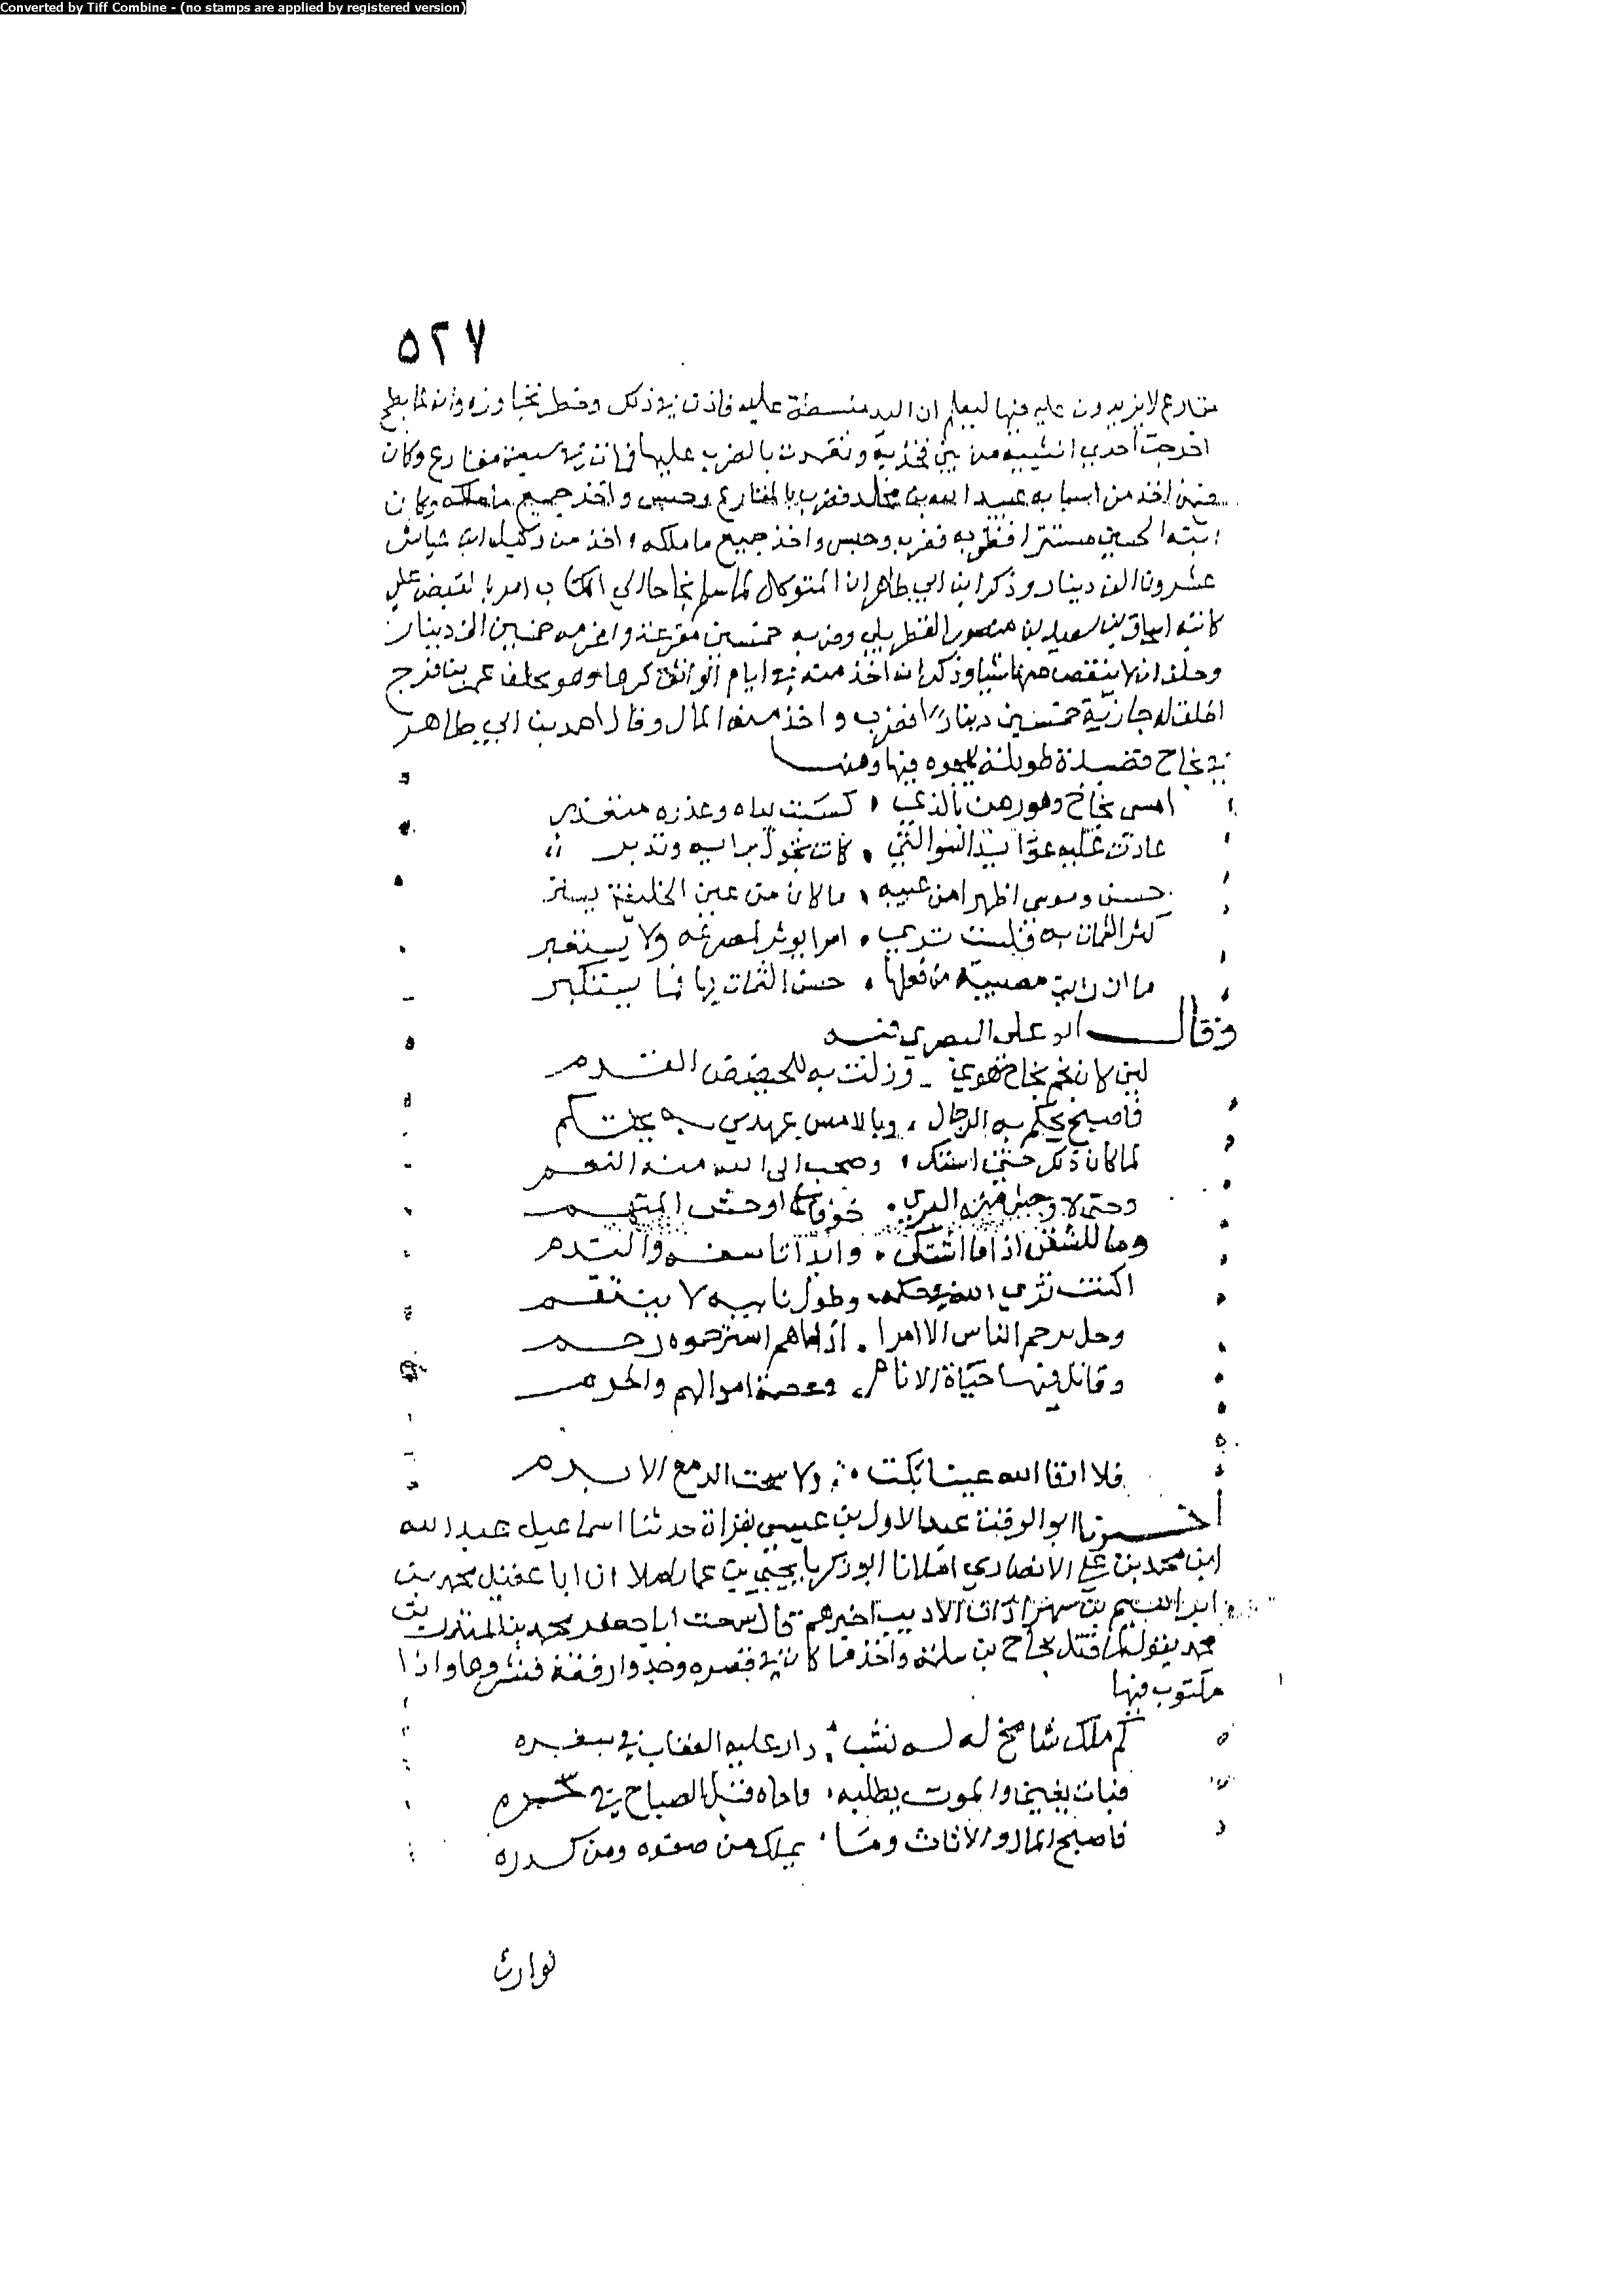 Converted by Tiff Combine - (no stamps are applied by registered version)
٥٢٧
مقارع لا يزيدون عليه فيها ليعلم ان اليد منبسطة عليه فاذن في ذلك وحظر تجاوزه وانه لما بطح
اخرجت احدي انثييه من بين فخذيه وتعمدت بالضرب عليها فمات في سبعة مقارع وكان
حينئذ اخذ من اسبابه عبيد الله بن مخلد فضرب بالمقارع وحبس واخذ جميع ما ملكه وكان
ابنه الحسين مستترا فظفر به فضرب وحبس واخذ جميع ما ملكه واخذ من وكيله ابن عياش
عشرون الف دينار وذكر ابن ابي طاهر ان المتوكل لما سلم نجاحا الي الكتاب امر بالقبض علي
كاتبه اسحاق بن سعيد بن منصور القطربلي وضربه خمسين مقرعة واغرمه خمسين الف دينار
وحلف ان لا ينقص منها شيا وذكر انه اخذ منه في ايام الواثق كرها وهو يخلف عمر بن فرج
خمسين دينارا فضرب واخذ منه المال وقال احمد بن ابي طاهر
في نجاح قصيدة طويلة يهجوه فيها ومنها
امسى نجاح وهو رهن بالذي كسبت يداه وعذره متعذر
عادت عليه عوائد السوء التي كانت تجول برايه وتدبر
حسن وموسى اظهرا من عيبه ما كان من عين الخليفة يستر
كثر الشمات به فليست تري امرا يوثر لمصرعه ولا يستعبر
ما ان رايت مصيبة من فعلها حسن الشمات بها فما يستنكر
وقال ابو علي البصري فيه
لين كان نجم نجاح هوي وزلت به للحضيض القدم
فاصبح يحكم به الرجال وبالامس عهدي به يحتكم
لما كان ذلك حتى اشتكت وضجت الى الله منه النعم
وحتى لاوجس منه البري خوفا كما اوحش المتهم
وما للشقي اذا ما اشتكى وابدا تاسفه والندم
اكنت تري الله في حكمه وطول تانيه لا ينتقم
وهل يرحم الناس الا امرا اذا ما هم استرحموه رحم
وقاتل فيها حياة الانام وعصمة اموالهم والحرم
فلا ارقا الله عينا بكت ولا سحت الدمع الا بدم
اخبرنا ابو الوقت عبد الاول بن عيسى بهراة حدثنا اسماعيل عبد الله
ابن محمد بن علي الانصاري املانا ابو زكريا يحيى بن عمار املا ان ابا عقيل محمد بن
ابراهيم بن الاديب اخبرهم قال سمعت ابا جعفر محمد بن المنذر بن
محمد يقول لما قتل نجاح بن سلمة واخذ ما كان في قصره وجدوا رقعة فنشروها واذا
مكتوب فيها
كم ملك شامخ له نشب دار عليه العقاب في سفره
فبات يغبي والموت يطلبه فاتاه قبل الصباح في سحره
فاصبح المال والاثاث وما يملك من صفوه ومن كدره
لوارث